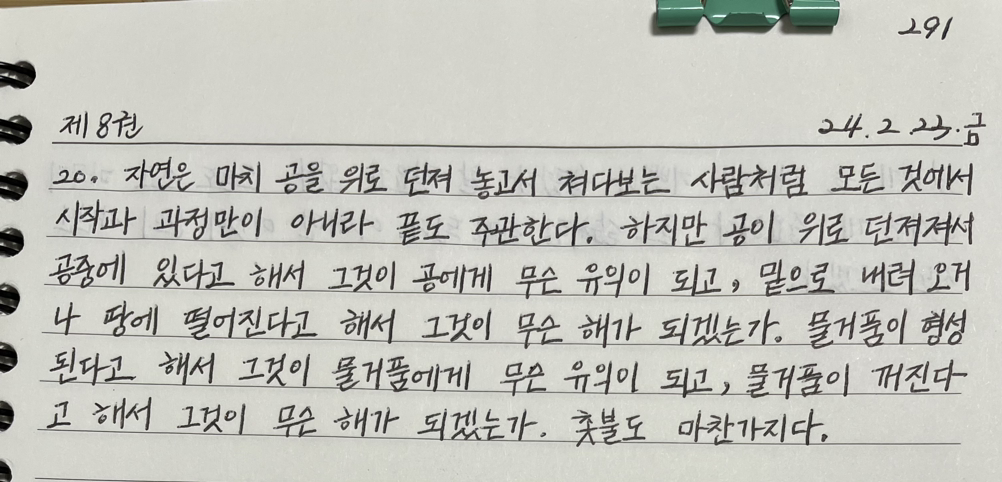 291
제 8권 24. 2. 23. 금
20. 자연은 마치 공을 위로 던져 놓고서 쳐다보는 사람처럼 모든 것에서
시작과 과정만이 아니라 끝도 주관한다. 하지만 공이 위로 던져져서
공중에 있다고 해서 그것이 공에게 무슨 유익이 되고, 밑으로 내려 오거
나 땅에 떨어진다고 해서 그것이 무슨 해가 되겠는가. 물거품이 형성
된다고 해서 그것이 물거품에게 무슨 유익이 되고, 물거품이 꺼진다
고 해서 그것이 무슨 해가 되겠는가. 촛불도 마찬가지다.